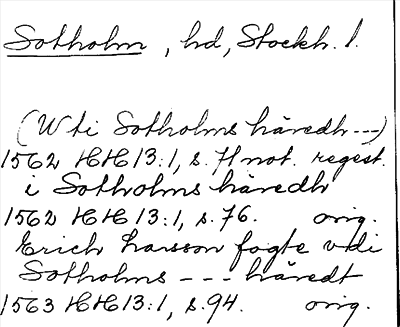 Sotholm, hd, Stockh. l.
(Wti Sotholms häredh ---)
1562 HH 13:1, s. 71 not. regest.
i Sotholms häredh
1562 HH 13:1, s. 76. orig.
Erich Larsson fogte vdi
Sotholms --- häredt
1563 HH 13:1, s. 94. orig.